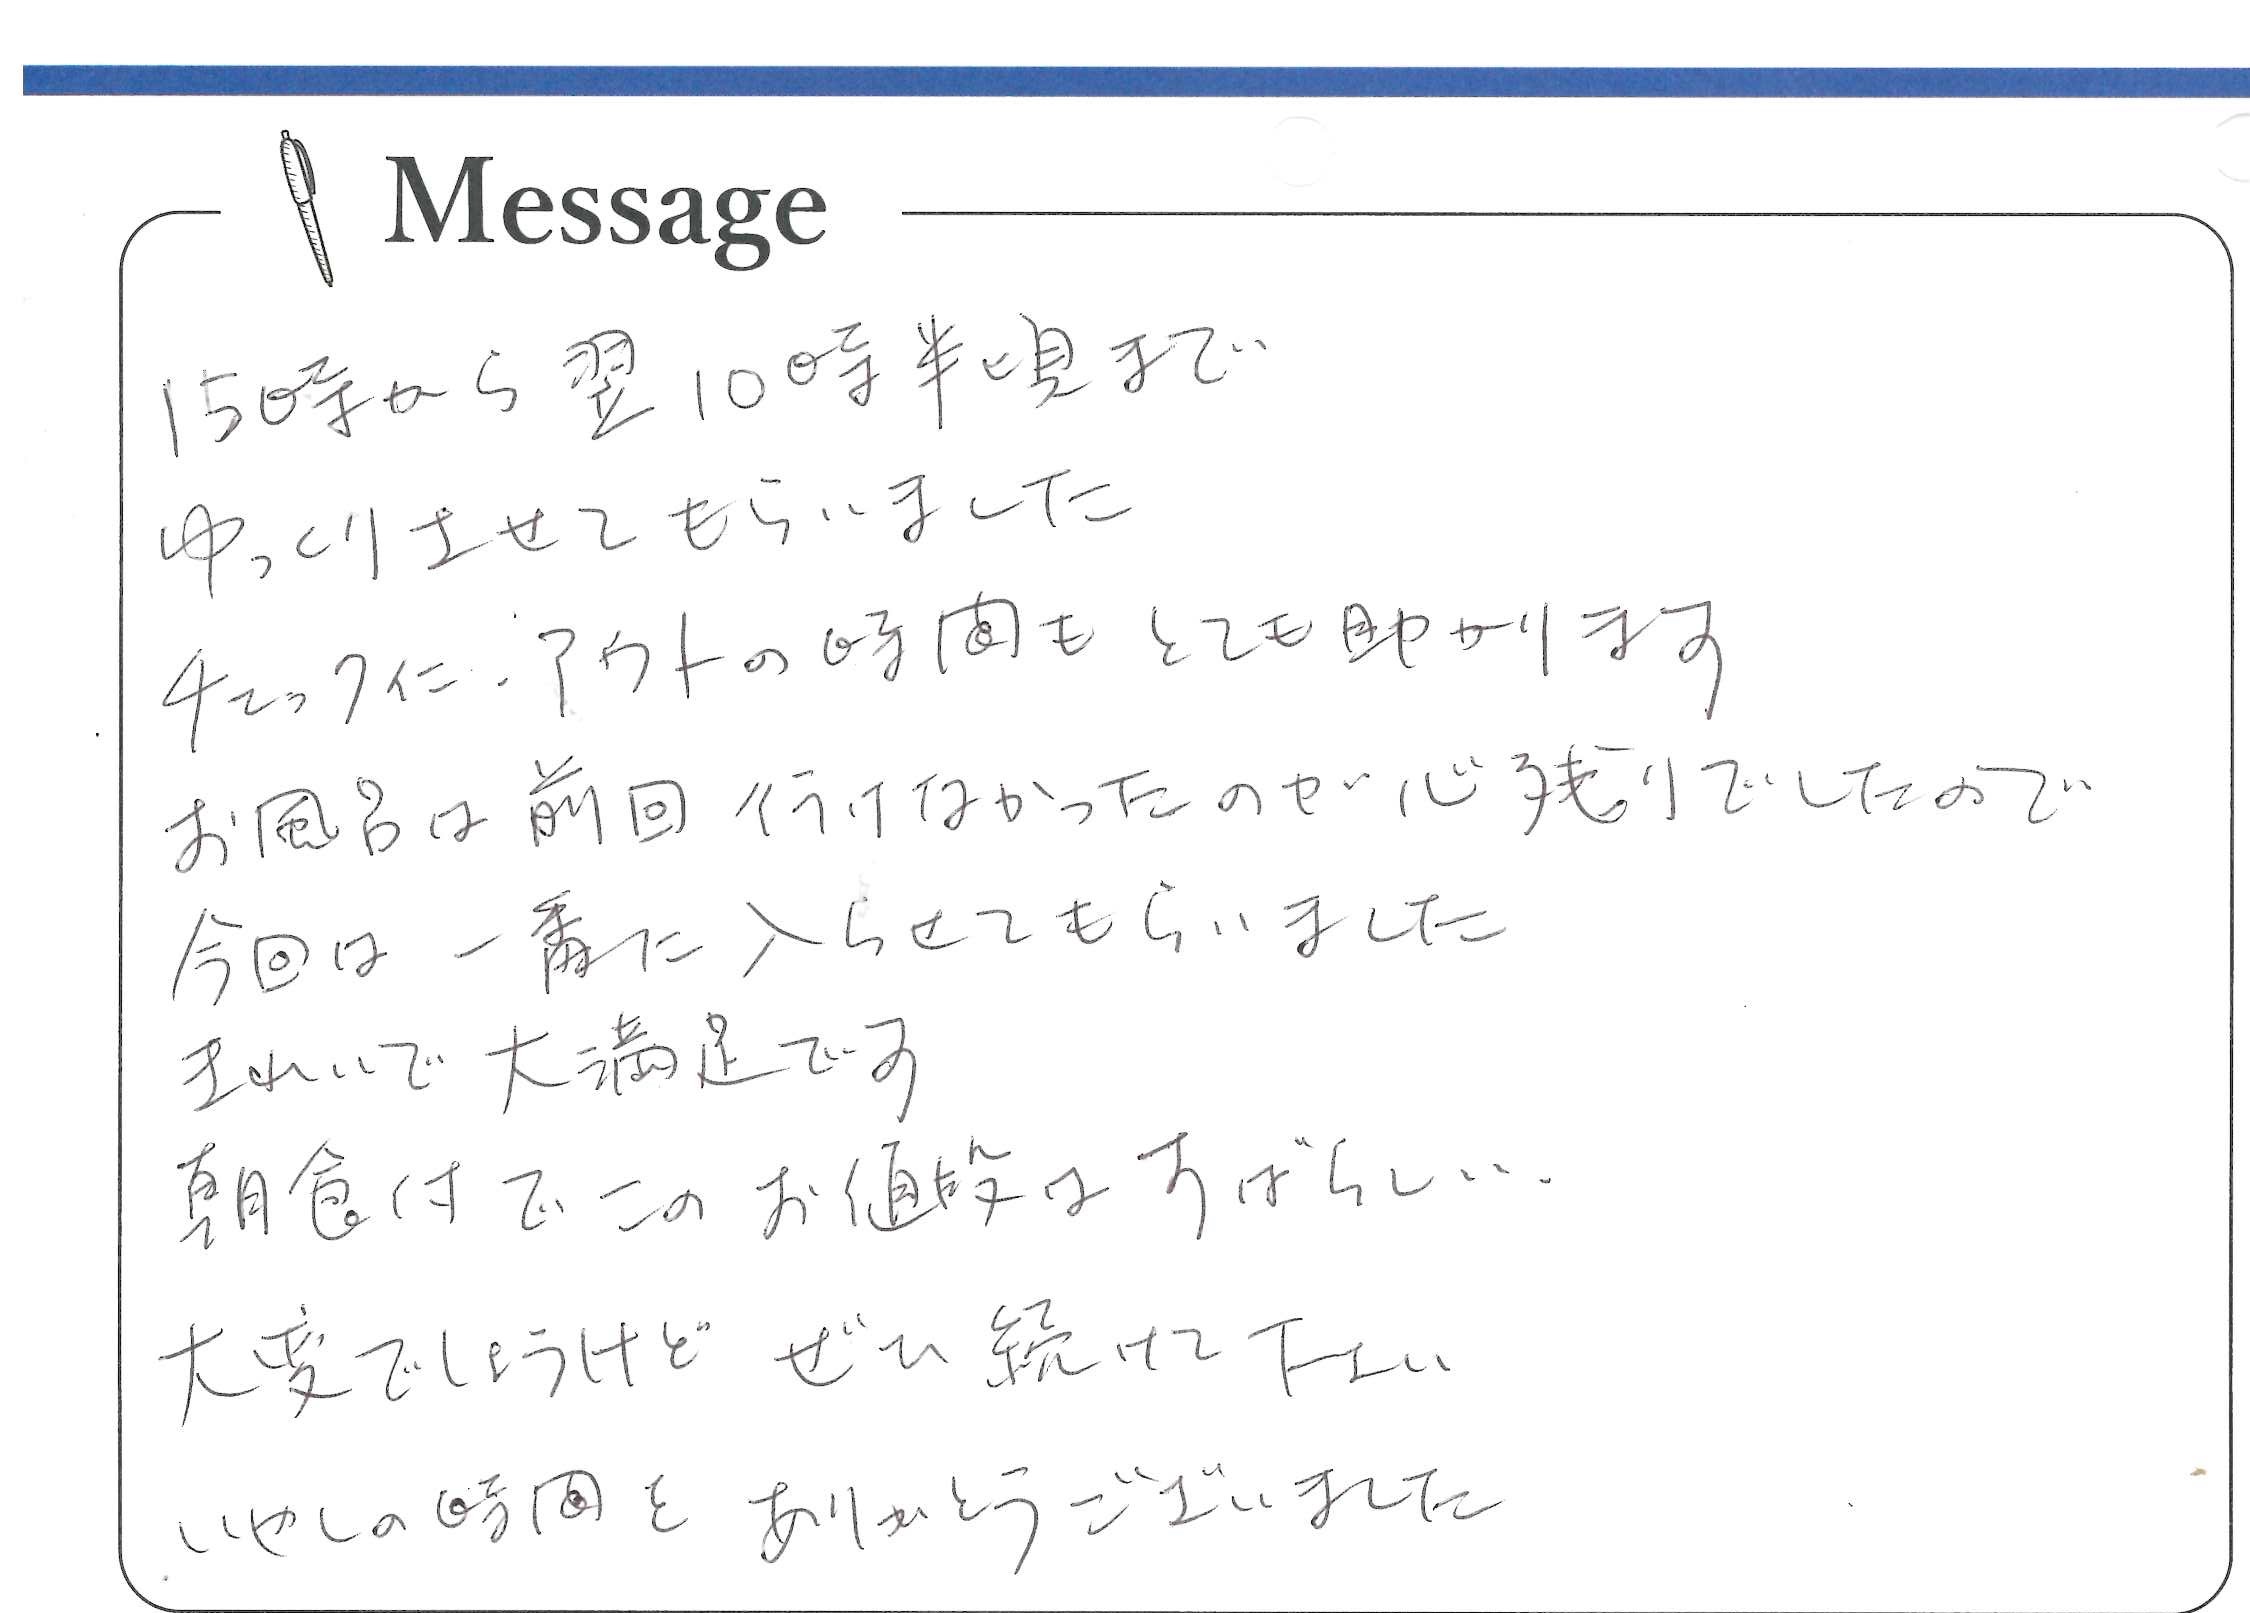 Message
15時から翌10時半頃まで
ゆっくりさせてもらいました
チェックイン・アウトの時間もとても助かります
お風呂は前回行けなかったのが心残りでしたので
今回は一番に入らせてもらいました
きれいで大満足です
朝食付でこのお値段はすばらしい.
大変でしょうけどぜひ続けて下さい
いやしの時間をありがとうございました